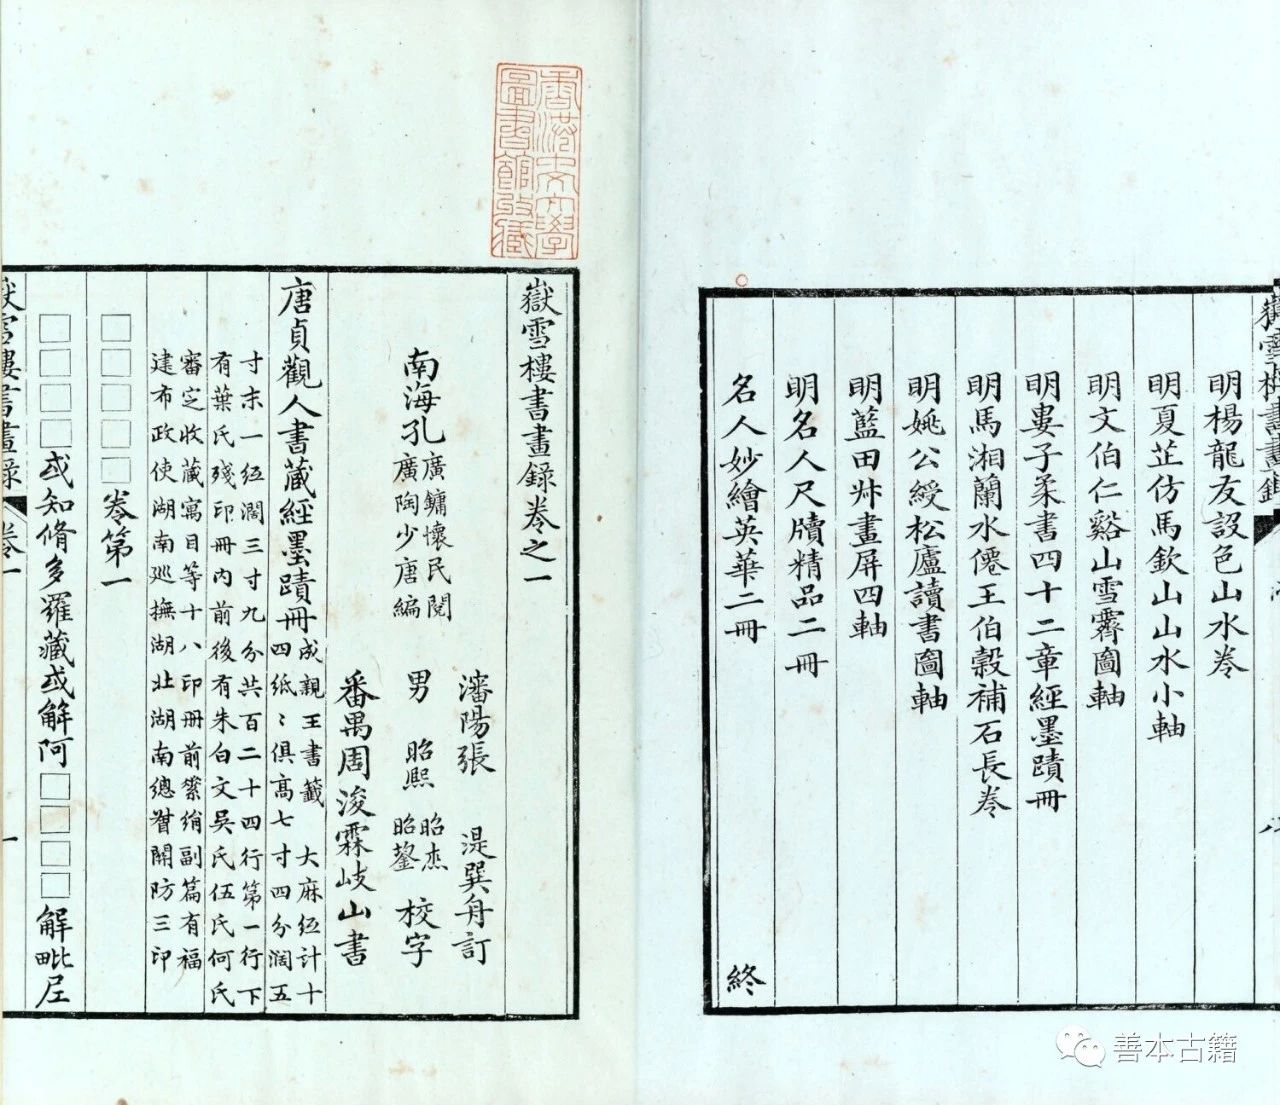 嶽雪樓書畫錄
明楊龍友設色山水卷
明夏芷仿馬欽山山水小軸
明文伯仁谿山雪霽圖軸
明婁子柔書四十二章經墨蹟冊
明馬湘蘭水僊王伯榖補石長卷
明姚公綬松廬讀書圖軸
明藍田叔畫屏四軸
明名人尺牘精品二冊
名人妙繪英華二冊
終
香港中文大學
圖書館攷藏
嶽雪樓書畫錄卷之一
瀋陽張 湜巽舟訂
南海孔廣鏞懷民閱
廣陶少唐編
男 昭熙 昭杰 校字
昭鋆
番禺周浚霖岐山書
唐貞觀人書藏經墨蹟冊 成親王書籤 大麻紙計十
四紙〻俱高七寸四分濶五
寸末一紙濶三寸九分共百二十四行第一行下
有葉氏殘印冊內前後有朱白文吳氏伍氏何氏
審定收藏寓目等十八印冊前綮綃副篇有福
建布政使湖南巡撫湖北湖南總督關防三印
□□□□□卷第一
□□□□或知脩多羅藏或解阿□□□□解毗尼
嶽雪樓書畫錄 卷一 一
善本古籍